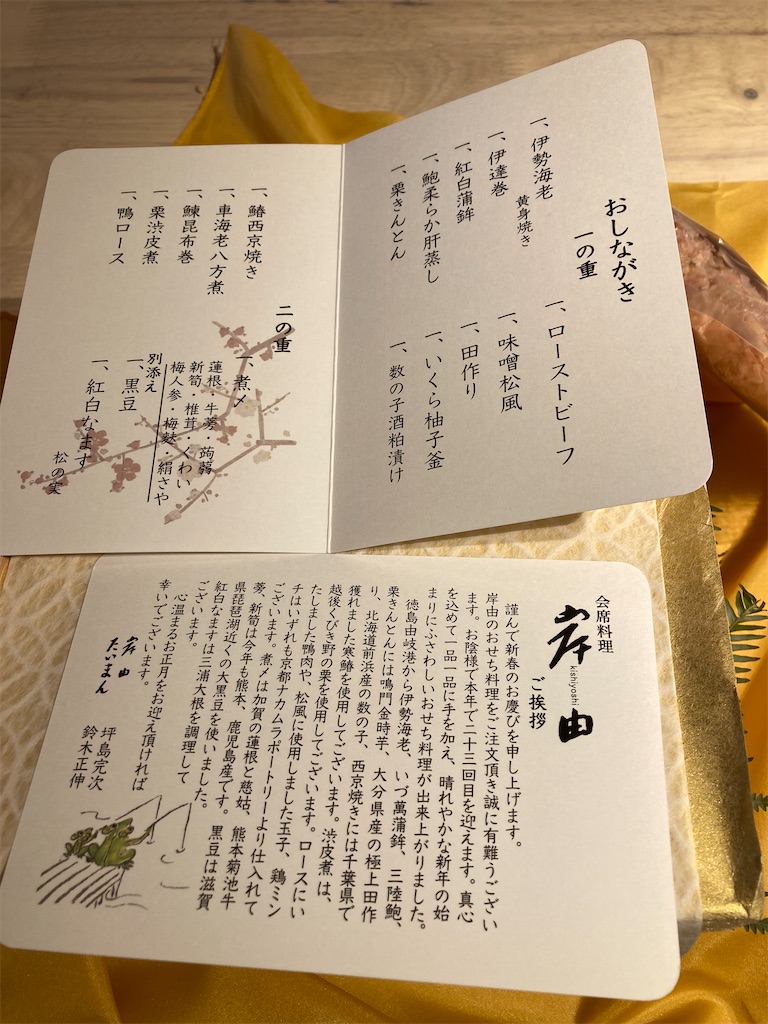 おしながき
一の重
一、伊勢海老
黄身焼き
一、伊達巻
一、紅白蒲鉾
一、鮑柔らか肝蒸し
一、栗きんとん
一、ローストビーフ
一、味噌松風
一、田作り
一、いくら柚子釜
一、数の子酒粕漬け
二の重
一、鰆西京焼き
一、車海老八方煮
一、鰊昆布巻
一、栗渋皮煮
一、鴨ロース
一、煮〆
蓮根・牛蒡・蒟蒻
新筍・椎茸・くわい
梅人参・梅麩・絹さや
別添え
一、黒豆
一、紅白なます
松の実
会席料理
岸由
kishiyoshi
ご挨拶
謹んで新春のお慶びを申し上げます。
岸由のおせち料理をご注文頂き誠に有難うござい
ます。お陰様で本年で二十三回目を迎えます。真心
を込めて一品一品に手を加え、晴れやかな新年の始
まりにふさわしいおせち料理が出来上がりました。
徳島由岐港から伊勢海老、いづ萬蒲鉾、三陸鮑、
栗きんとんには鳴門金時芋、大分県産の極上田作
り、北海道前浜産の数の子、西京焼きには千葉県で
獲れました寒鰆を使用してございます。渋皮煮は、
越後くびき野の栗を使用してございます。ロースにい
たしました鴨肉や、松風に使用しました玉子、鶏ミン
チはいずれも京都ナカムラポートリーより仕入れて
ございます。煮〆は加賀の蓮根と慈姑、熊本菊池牛
蒡、新筍は今年も熊本、鹿児島産です。黒豆は滋賀
県琵琶湖近くの大黒豆を使いました。
紅白なますは三浦大根を調理して
ございます。
心温まるお正月をお迎え頂ければ
幸いでございます。
岸由
たいまん
坪島完次
鈴木正伸